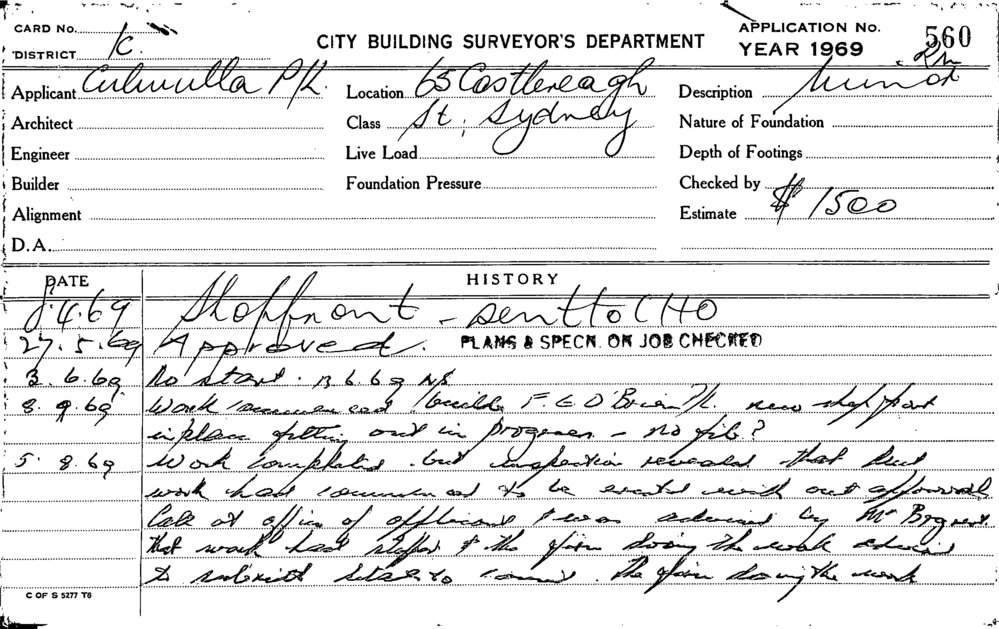 CARD No.
DISTRICT K.
CITY BUILDING SURVEYOR'S DEPARTMENT
APPLICATION No. 560
YEAR 1969
Applicant Culwulla P/L. Location 65 Castlereagh Description Minor
Architect Class St, Sydney Nature of Foundation
Engineer Live Load Depth of Footings
Builder Foundation Pressure Checked by
Alignment Estimate $ 1500
D.A.
DATE HISTORY
8.4.69 Shopfront - sent to CHO
27.5.69 Approved. PLANS & SPECN. ON JOB CHECKED
3.6.69 No start. 13.6.69 NS
8.9.69 Work commenced builder F. E O'Brien P/L. new shop front
in place fitting out in progress - no job?
5.8.69 Work completed but inspection revealed that
work had commenced to be with out approval
Call at office of applicant & was advised by Mr
that work had stopped & the firm doing the work
to submit details to council. The firm doing the work
C OF S 5277 T6